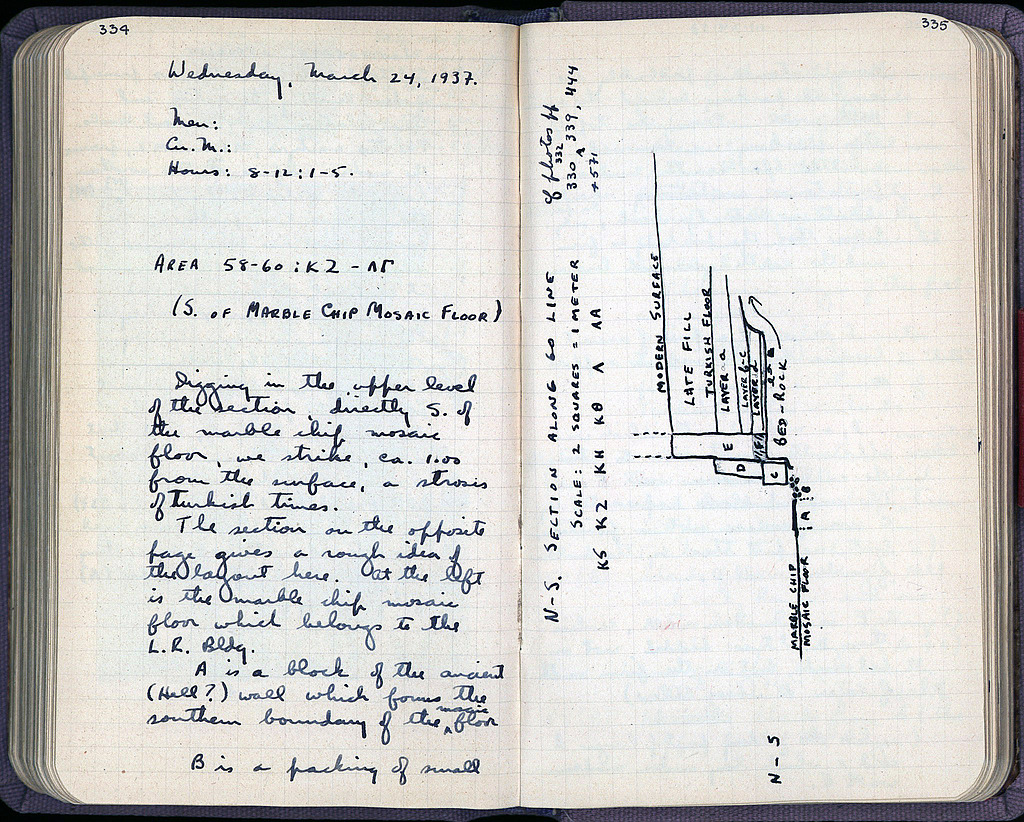 334
Wednesday, March 24, 1937.
Men:
Cu.M.:
Hours: 8-12:1-5.
AREA 58-60 : KZ - ΛΓ
(S. OF MARBLE CHIP MOSAIC FLOOR)
Digging in the upper level
of the section, directly S. of
the marble chip mosaic
floor, we strike, ca. 1.00
from the surface, a strosis
of Turkish times.
The section on the opposite
page gives a rough idea of
the layout here. At the left
is the marble chip mosaic
floor which belongs to the
L.R. Bldg.
A is a block of the ancient
(Hell?) wall which forms the
southern boundary of the mosaic floor
B is a packing of small
335
cf photos pp
330 332 339, 444
+ 571
N-S. SECTION ALONG 60 LINE
SCALE: 2 SQUARES = 1 METER
KS KZ KH KΘ Λ ΛA
MODERN SURFACE
LATE FILL
TURKISH FLOOR
LAYER a
LAYER b-c
LAYER d
BED-ROCK
E
D
C
A
B
MARBLE CHIP
MOSAIC FLOOR
N - S